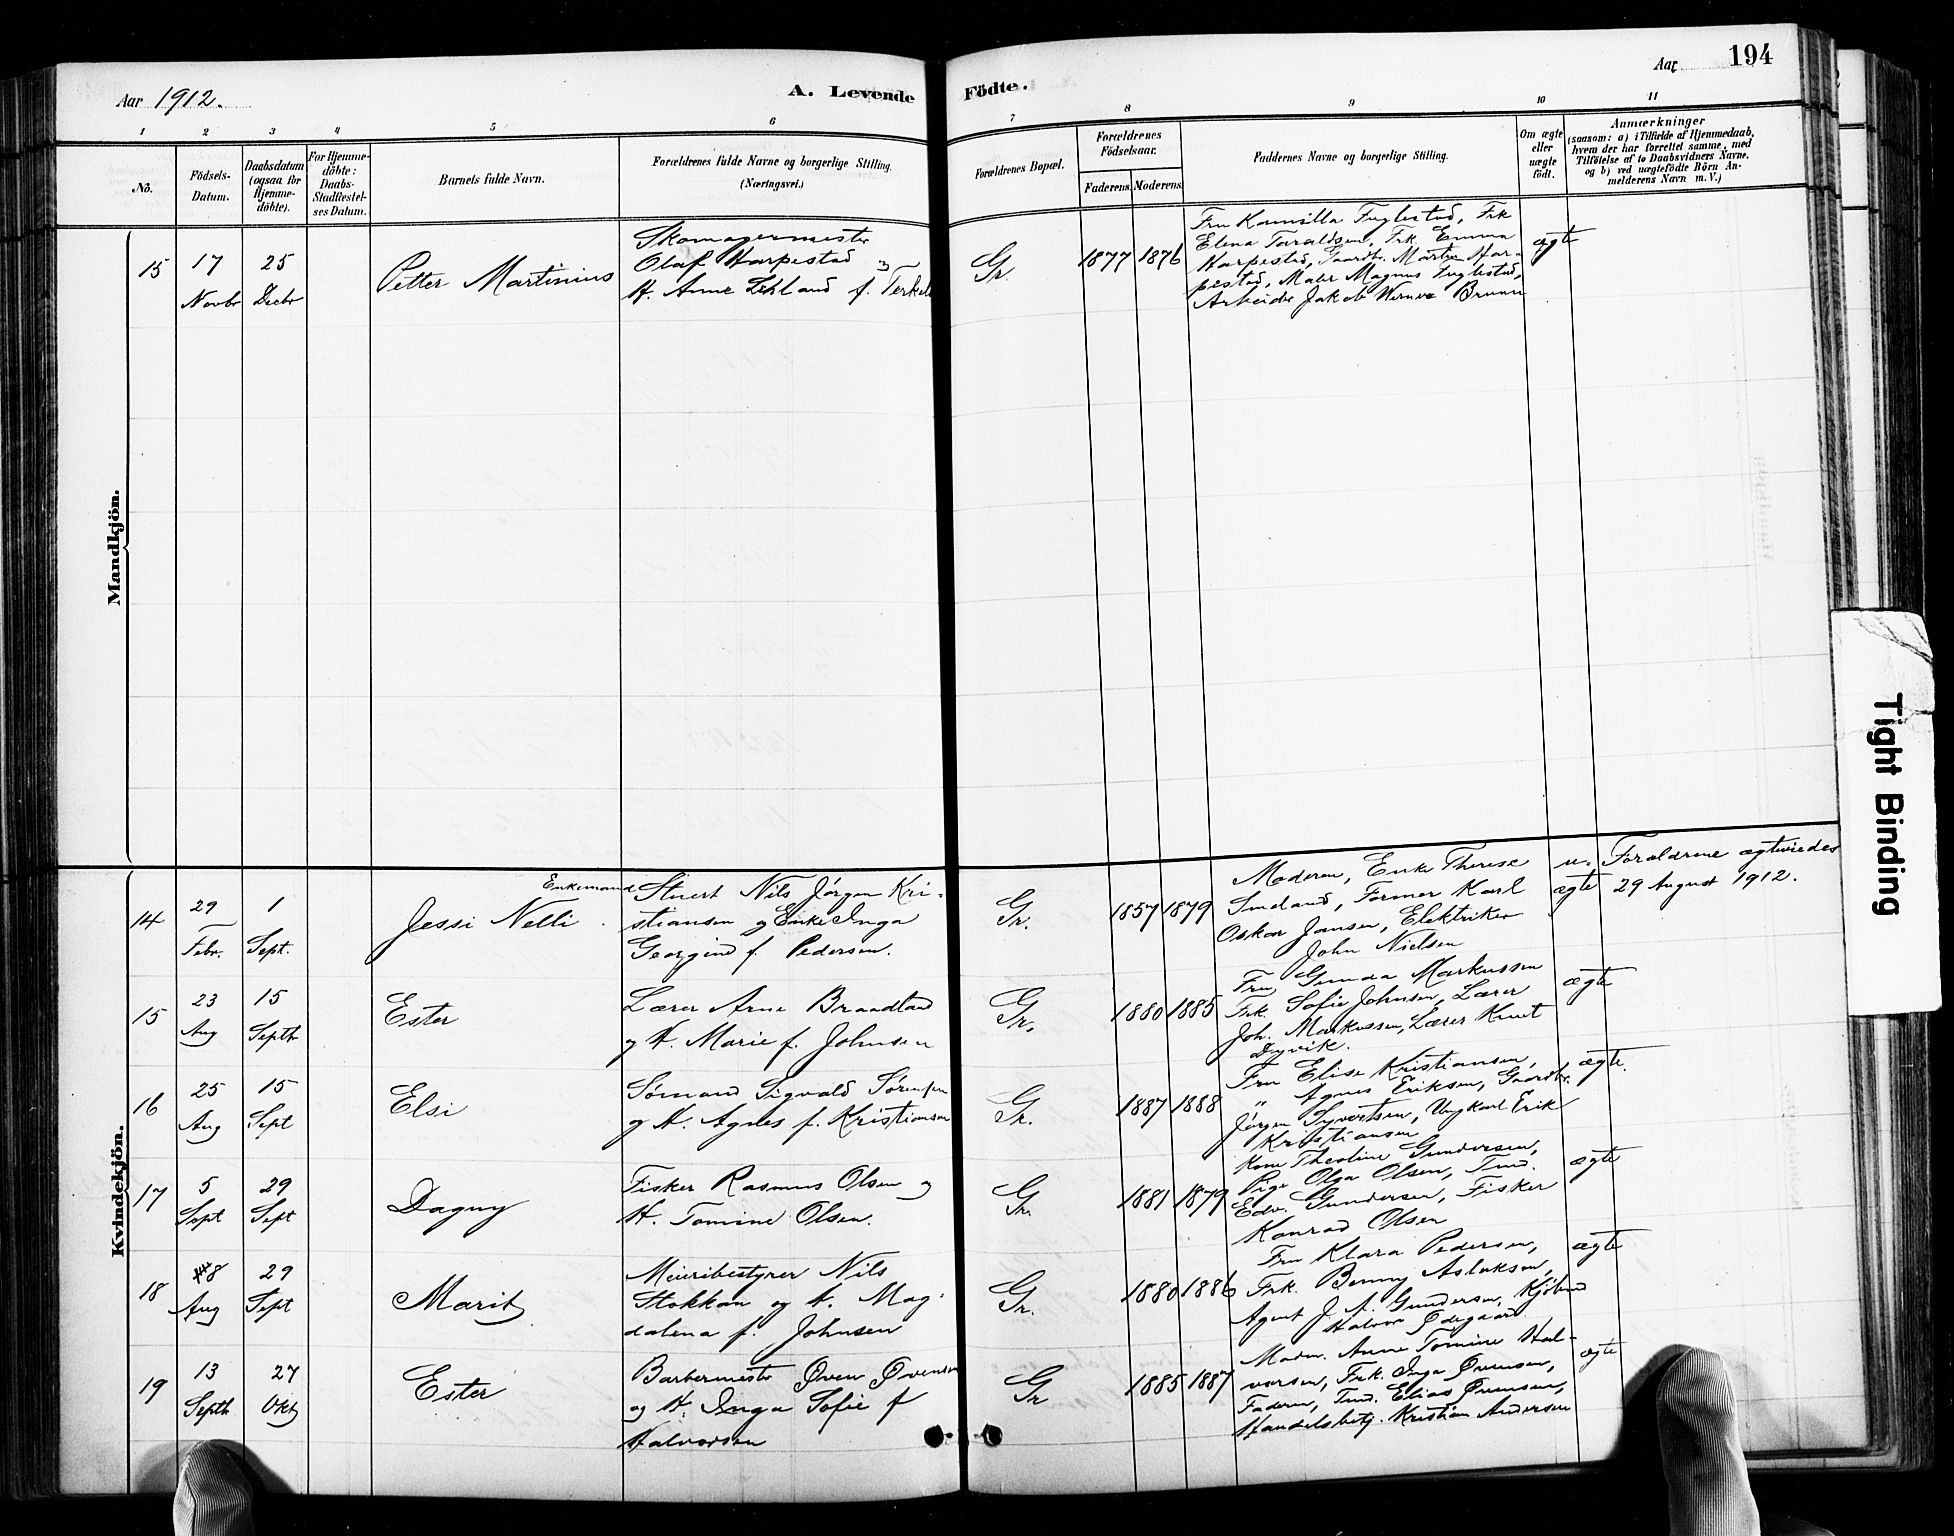 Aar 1912.
A. Levende Födte.
Aar
194
1 2 3 4 5 6 7 8 9 10 11
No.
Födsels-
Datum.
Daabsdatum
(ogsaa for
Hjemme-
döbte).
For Hjemme-
döbte:
Daabs-
Stadfæstel-
ses Datum.
Barnets fulde Navn.
Forældrenes fulde Navne og borgerlige Stilling.
(Næringsvei.)
Forældrenes Bopæl.
Forældrenes
Födselsaar.
Faderens. Moderens.
Faddernes Navne og borgerlige Stilling.
Om ægte
eller
uægte
födt.
Anmærkninger
(saasom: a) i Tilfælde af Hjemmedaab,
hvem der har forrettet samme, med
Tilföielse af to Daabsvidners Navne.
og b) ved uægtefödte Börn An-
melderens Navn m. V.)
Mandkjön.
15
17
Novbr
25
Decbr
Petter Martinius
Skomagermester
Olaf Harpestad og
H. Anne f.
Gr.
1877 1876
Fru Kamilla Fuglestad, Frk
Elena Taraldsen, Frk. Emma
Harpestad, Gaardbr. Martin Har-
pestad, Maler Magnus Fuglestad,
Arbeider Jakob Werner Bruun
ægte
Kvindekjön.
14
29
Febr.
1
Sept.
Jessi Nelli
Enkemand
Stuert Nils Jörgen Kri-
stiansen og Enke Inga
Georgine f. Pedersen.
Gr.
1857 1879
Moderen, Enke Therese
Smeland, Former Karl
Oskar Jansen, Elektriker
John Nielsen
u-
ægte
Forældrene ægteviedes
29 August 1912.
15
23
Aug
15
Septb
Ester
Lærer Arne Brandtland
og H. Marie f. Johnsen
Gr.
1880 1885
Fru Gunda Markussen
Frk. Sofie Johnsen, Lærer
Joh. Markussen, Lærer Knut
Dyvik.
ægte
16
25
Aug
15
Sept
Elsi
Sömand Sigvald Sörensen
og H. Agnes f. Kristiansen
Gr.
1887 1888
Fru Elise Kristiansen,
" Agnes Eriksen, Gaardbr.
Jörgen Syvertsen, Ungkarl Erik
Kristiansen
ægte.
17
5
Sept
29
Sept
Dagny
Fisker Rasmus Olsen og
H. Tomine Olsen.
Gr.
1881 1879
Kone Theoline Gundersen,
Pige Olga Olsen, Tmd.
Edv. Gundersen, Fisker
Konrad Olsen
ægte
18
8
Aug
29
Sept
Marit
Meieribestyrer Nils
Stokkan og H. Mag-
dalena f. Johnsen
Gr.
1880 1886
Fru Klara Pedersen,
Frk. Benny Aslaksen,
Agent J. A. Gundersen, Kjöbmd
Halvor Ödegaard
ægte
19
13
Septb
27
Okt
Ester
Barbermester Öven Övensen
og H. Inga Sofie f
Halvorsen
Gr
1885 1887
Madm. Anne Tomine Hal-
vorsen, Frk. Inga Övensen,
Faderen, Tmd. Elias Övensen,
Handelsbetj. Kristian Andersen
ægte
Tight Binding